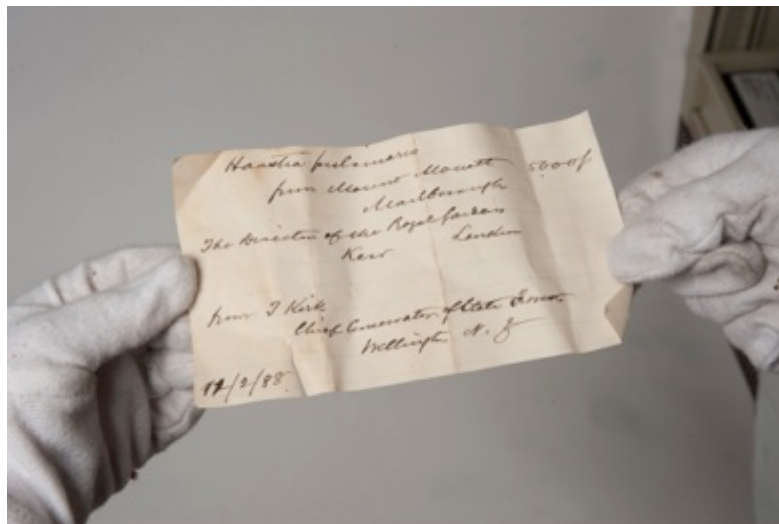 Haastia pulvinaris
from Mount Mouatt 5000f
Marlborough
The Director of the Royal Gardens
Kew London
from T Kirk
Chief Conservator of State Forests
Wellington N. Z
12/2/88